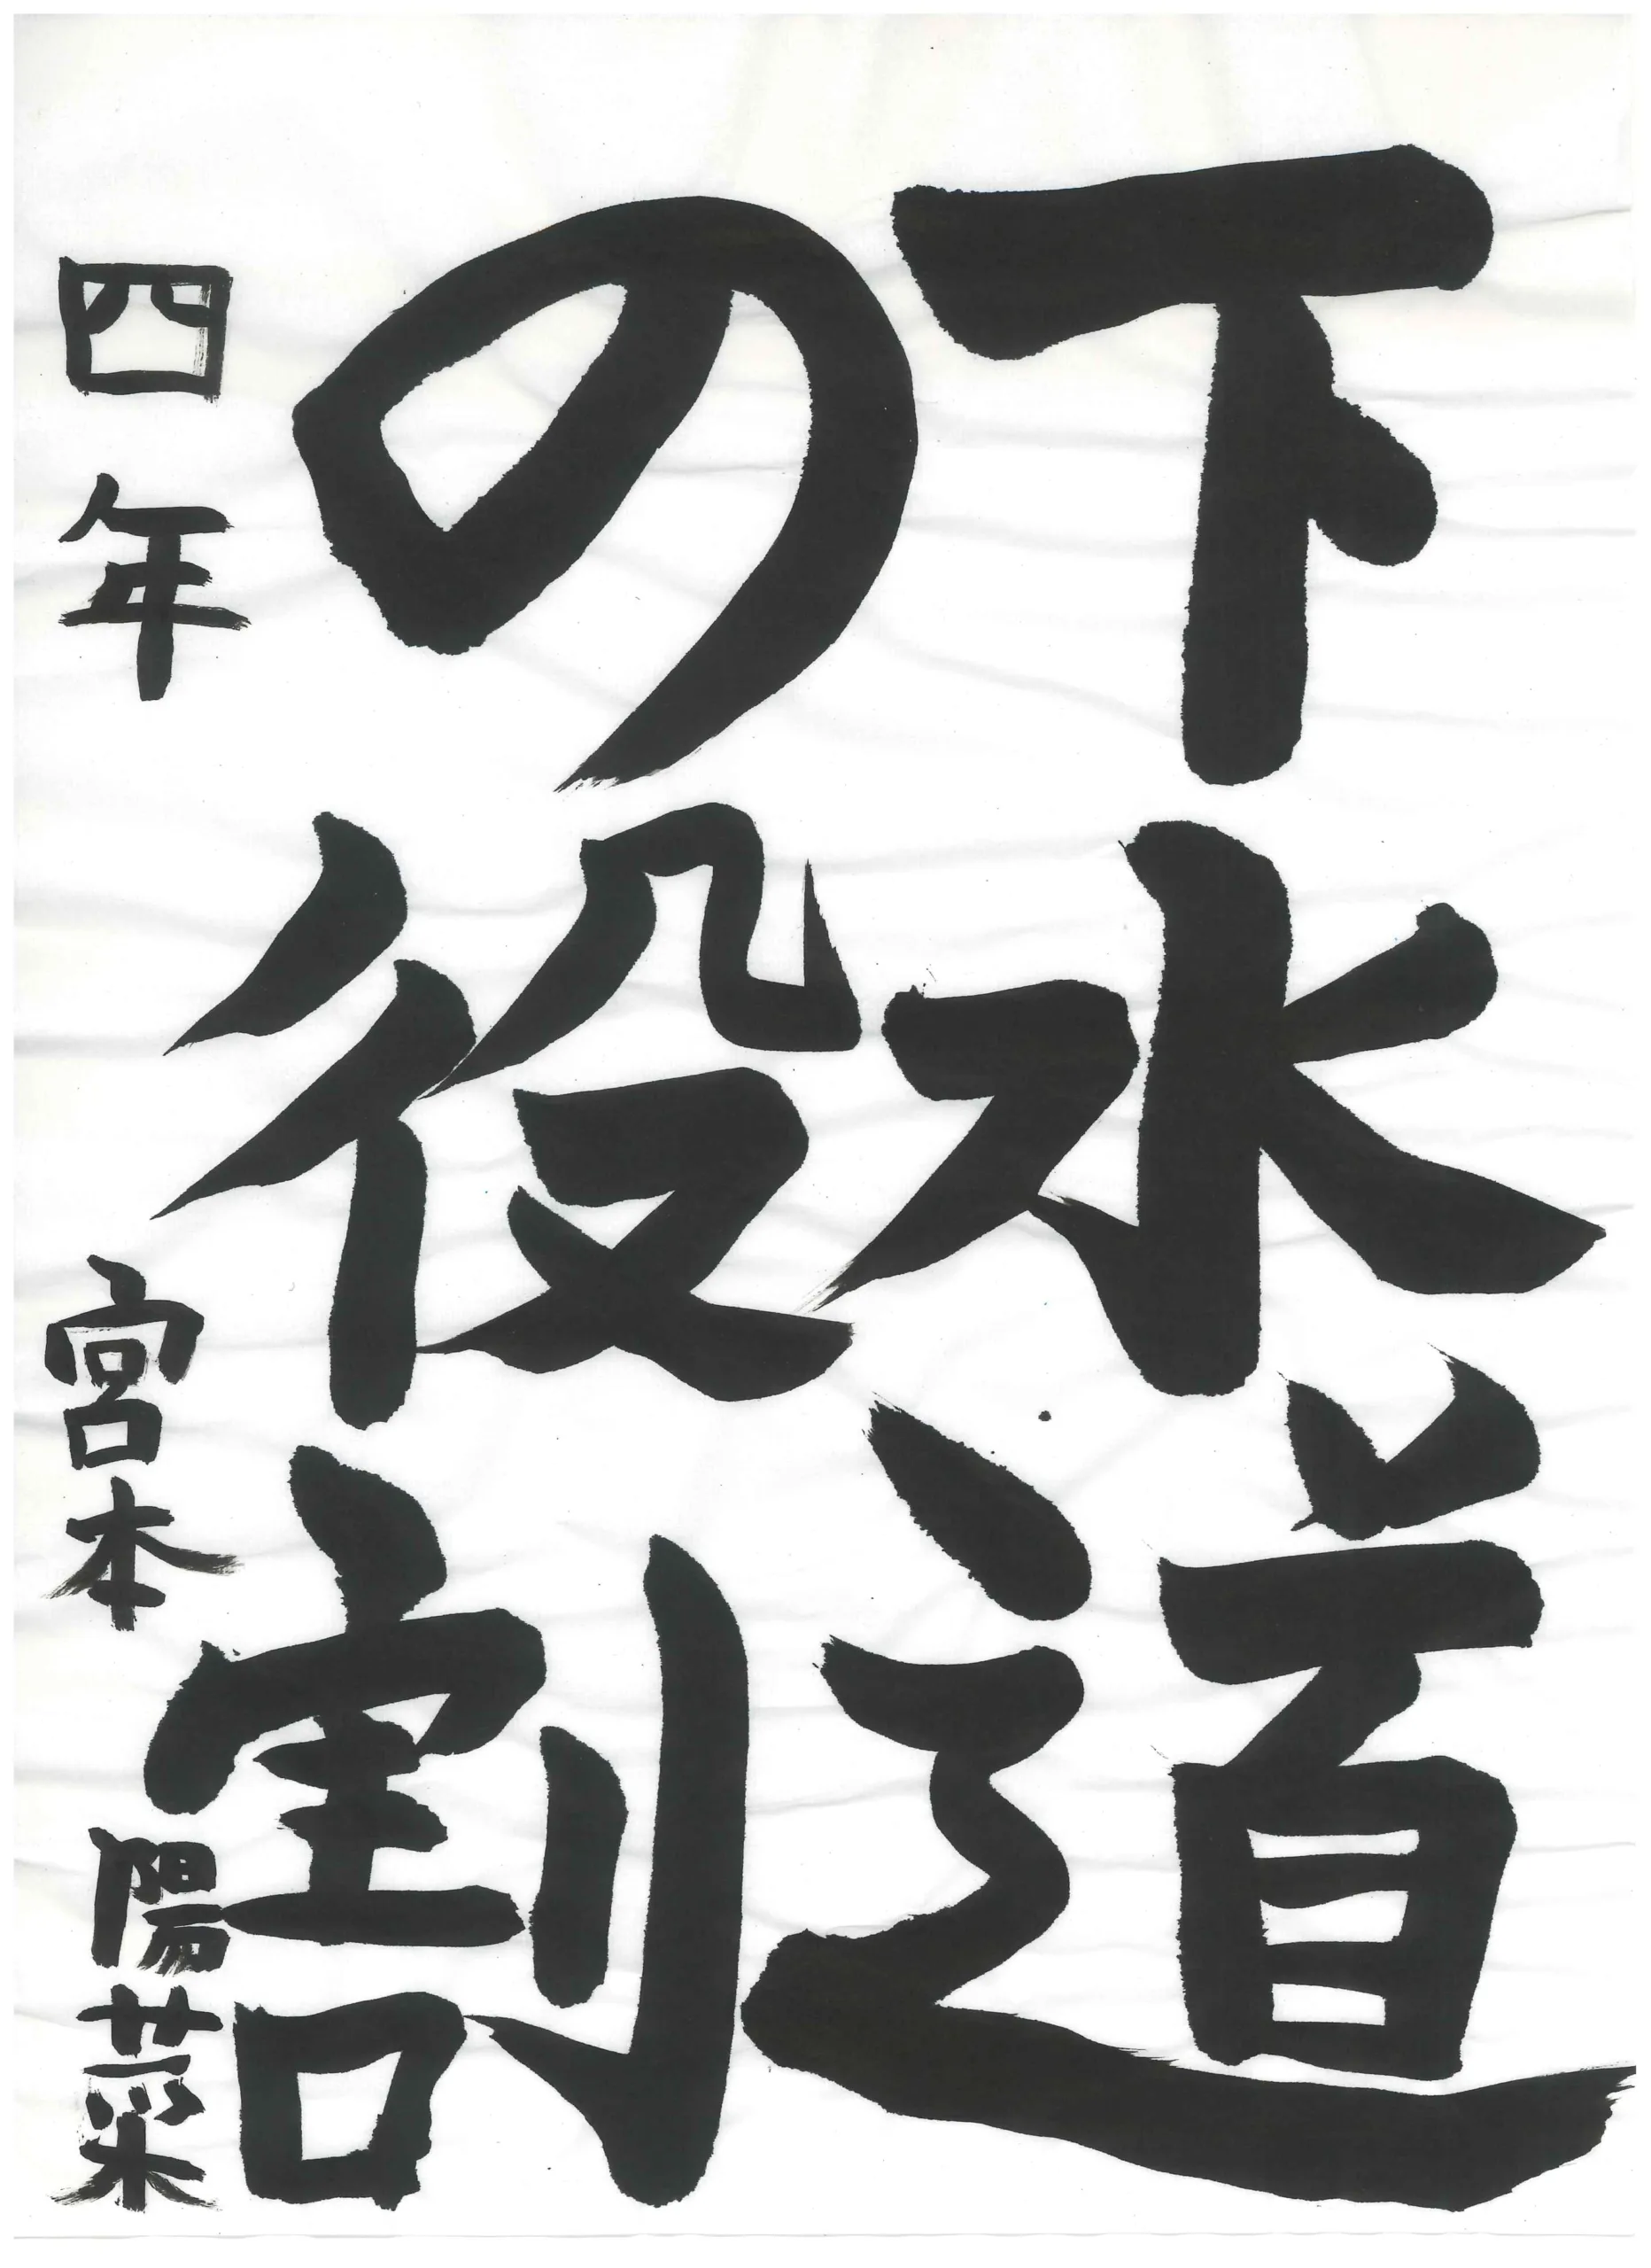 下水道
の役割
四年 宮本陽菜